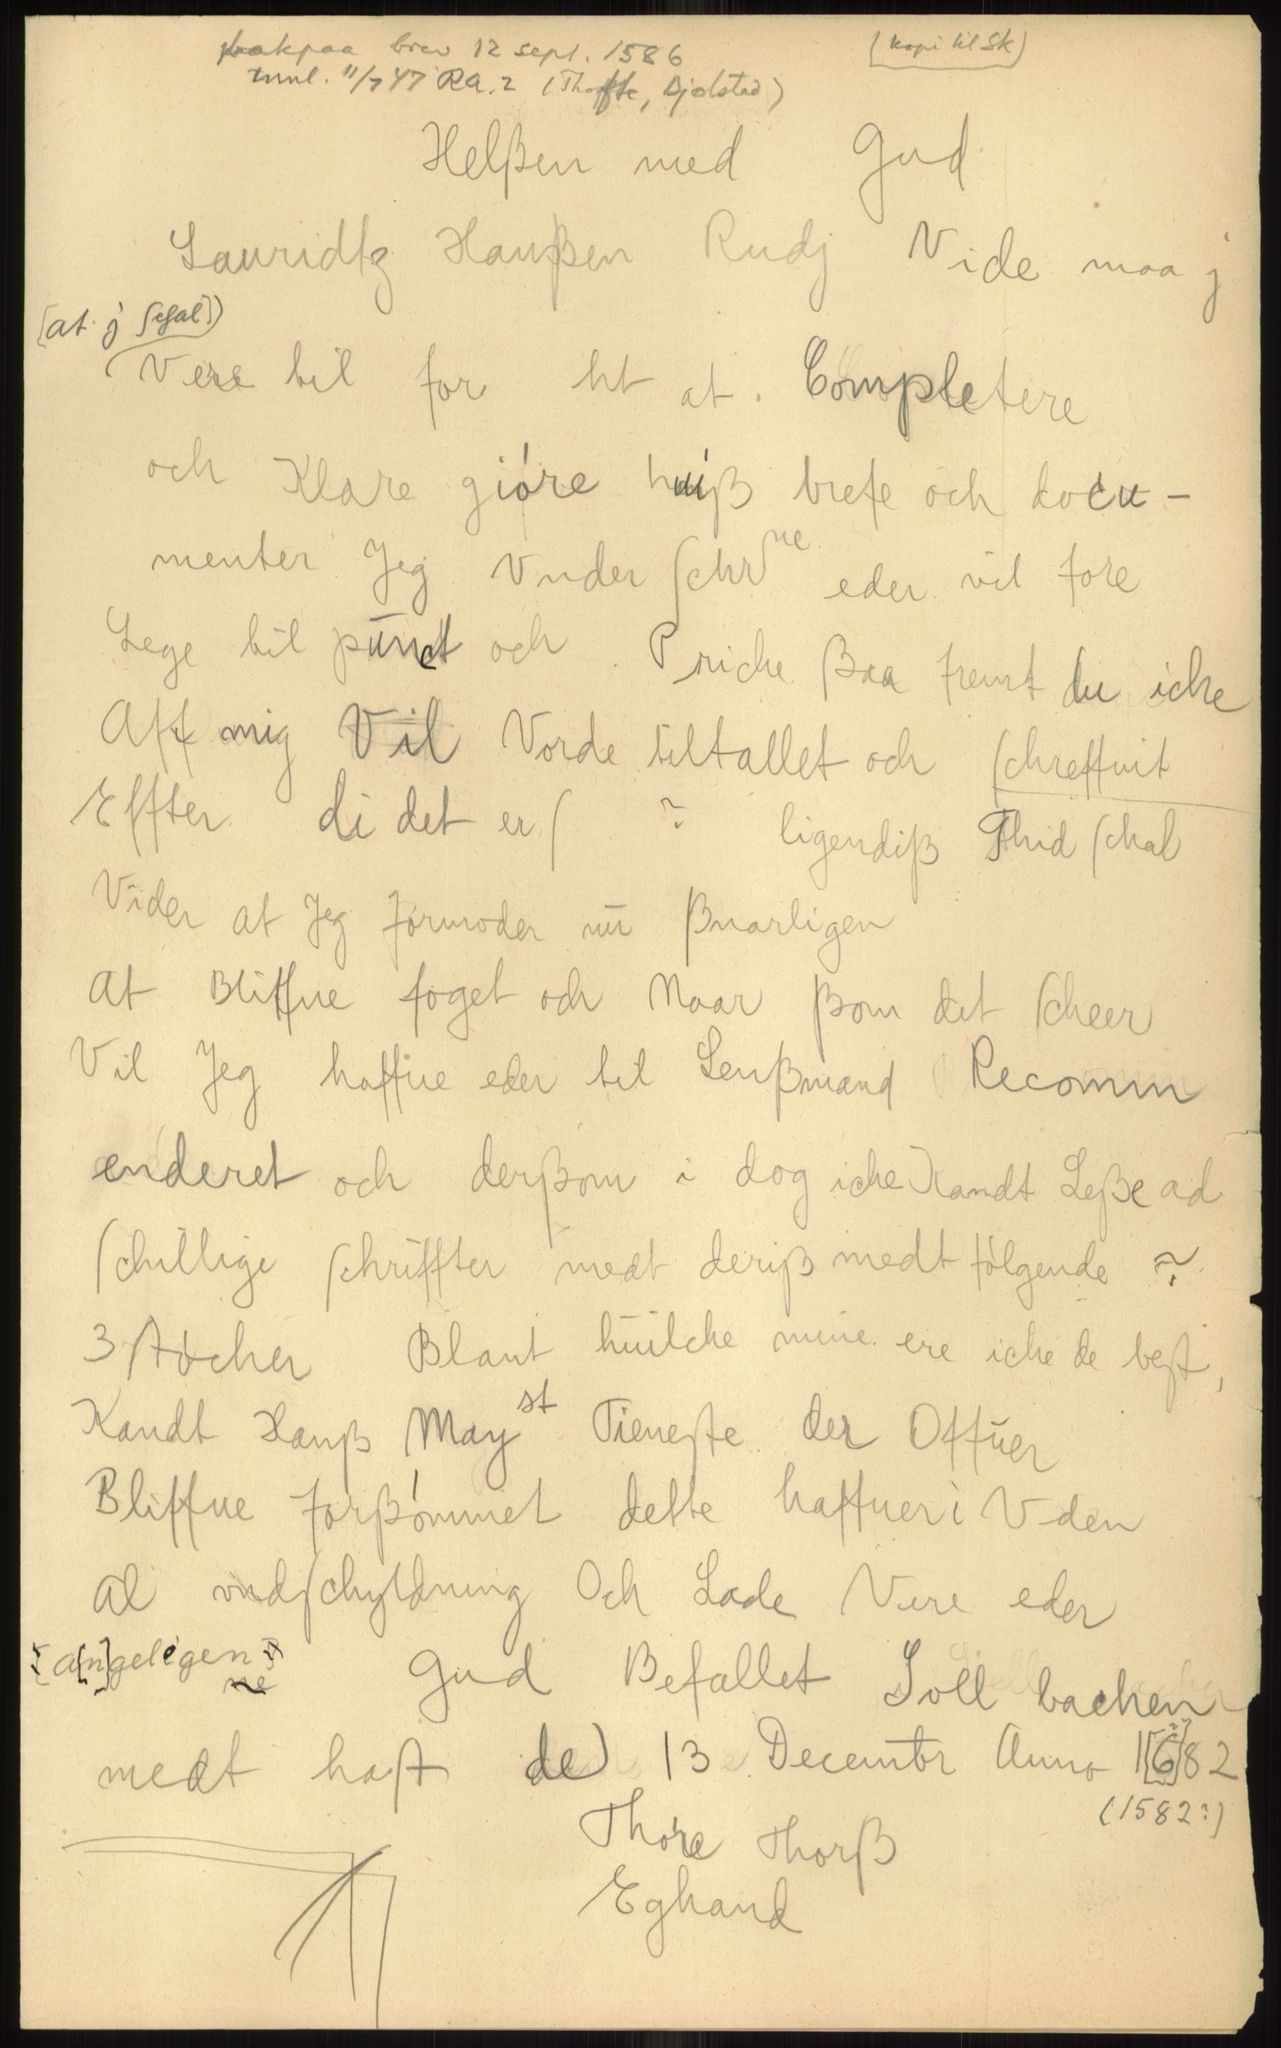 bakpaa brev 12 sept. 1586 (kopi til Sk)
innl. 11/7 47 RA. 2 (Thofte, Djolstad)
Helßen med Gud
Lauridtz Hanßen Rudj Vide maa j
[at j schal]
Vere til for ht at Completere
och Klare giöre huiß brefe och docu-
menter Jeg Vnder schrne eder vil fore
Lege til punct och Priche ßaa fremt du iche
Aff mig Vil Vorde tiltallet och schreffuit
Effter di det er ? ligendiß Thid schal
Vider at Jeg formoder nu ßnarligen
At Bliffue foget och Naar ßom det scheer
Vil Jeg haffue eder til Lenßmand Recomm
enderet och derßom i dog iche Kandt Leße ad
schillige schriffter medt deriß medt fölgende ?
3 støcher Blant huilche mine ere iche de best,
Kandt Hanß Mayst Tieneste der Offuer
Bliffue forßömmet dette haffuer i Vden
al vndschyldning Och Lade Vere eder
[a[n]geligen]
ne
Gud Befallet Soll bachen
medt hast de) 13 Decembr Anno 1[6?]82
(1582?)
Thore Thorß
Eghand